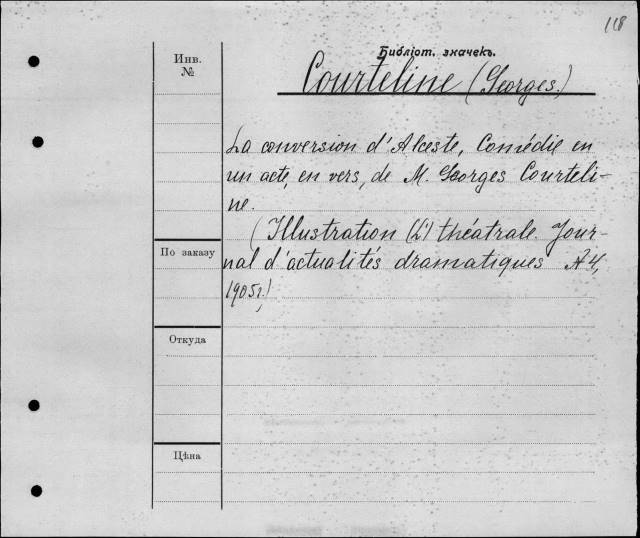 118
Библіот. значекъ.
Courteline (Georges,)
Инв.
№
La conversion d'Alceste, Comédie en
un acte, en vers, de M. Georges Courteli-
ne.
(Illustration (L') théatrale. Jour-
nal d'actualités dramatiques №4,
1905г.)
По заказу
Откуда
Цѣна